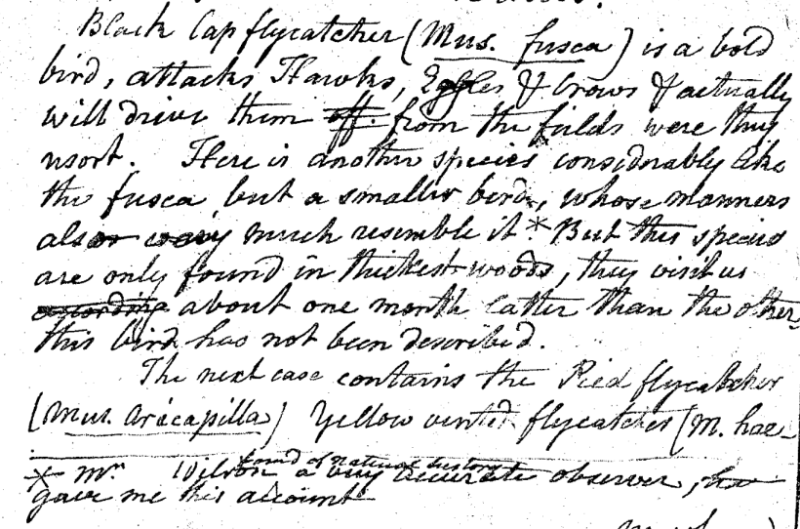 Black Cap flycatcher (Mus. fusca) is a bold
bird, attacks Hawks, Eagles & Crows & actually
will drive them off. from the feilds were they
resort. Here is another species considerably like
the fusca but a smaller bird, whose manners
also much resemble it * But this species
are only found in thickest woods, they visit us
according about one month latter than the other,
this bird has not been described.
The next case contains the Pied flycatcher
(Mus. aricapilla) Yellow vented flycatcher (M. hae-
fond of natural history
* Mr. Wilson a very accurate observer,
gave me this account